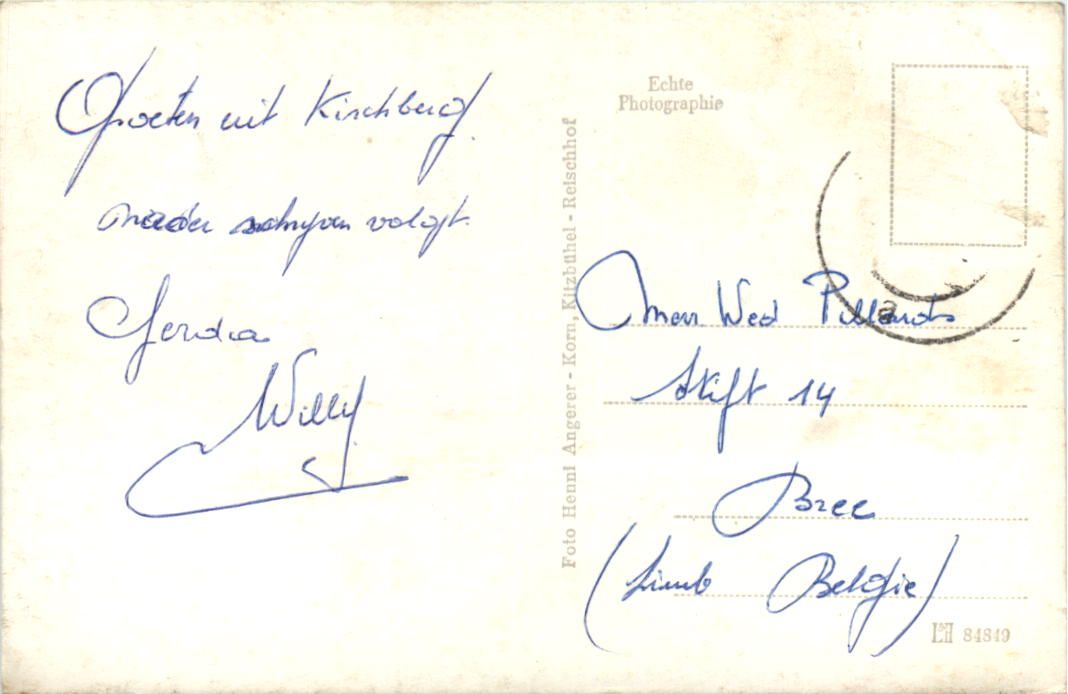 Groeten uit Kirchberg.
nader schrijven volgt.
Gerda
Willy
Echte
Photographie
Foto Henni Angerer - Korn, Kitzbühel - Reischhof
Wed
Stift 14
Bree
(Limb Belgie)
84849